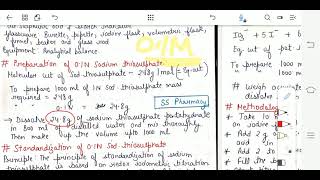 Glassware: Burette, pipette, Iodine flask, volumetric flask,
funnel, beaker and glass rod
Equipment: Analytical balance
0.1M
# Preparation of 0.1N Sodium thiosulphate
Molecular wt of Sod. thiosulphate = 248g/mol = Eq. wt
To prepare 1000 ml of 1N Sod thiosulphate mass
required = 248g
24.8g
SS Pharmacy
→ Dissolve 24.8g of sodium thiosulphate pentahydrate
in 800 ml of distilled water and mix thoroughly
Then make up the volume upto 1000 ml
# Standardization of 0.1N Sod thiosulphate
Principle: The principle of standardization of sodium
thiosulphate is based on Redox Iodometric titration
Eq. wt of pot
To prepare 1000
# weigh
dissolve
# Methodology
→ Take 10
→ Add 2 g
→ Add
→ Fill the